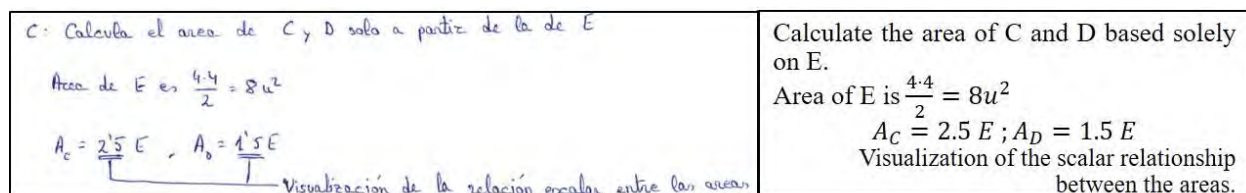 C: Calcula el area de C y D solo a partir de la de E
Area de E es 4·4/2 = 8u²
A_C = 2'5 E , A_D = 1'5 E
Visualización de la relación escalar entre las areas
Calculate the area of C and D based solely
on E.
Area of E is 4·4/2 = 8u²
A_C = 2.5 E ; A_D = 1.5 E
Visualization of the scalar relationship
between the areas.